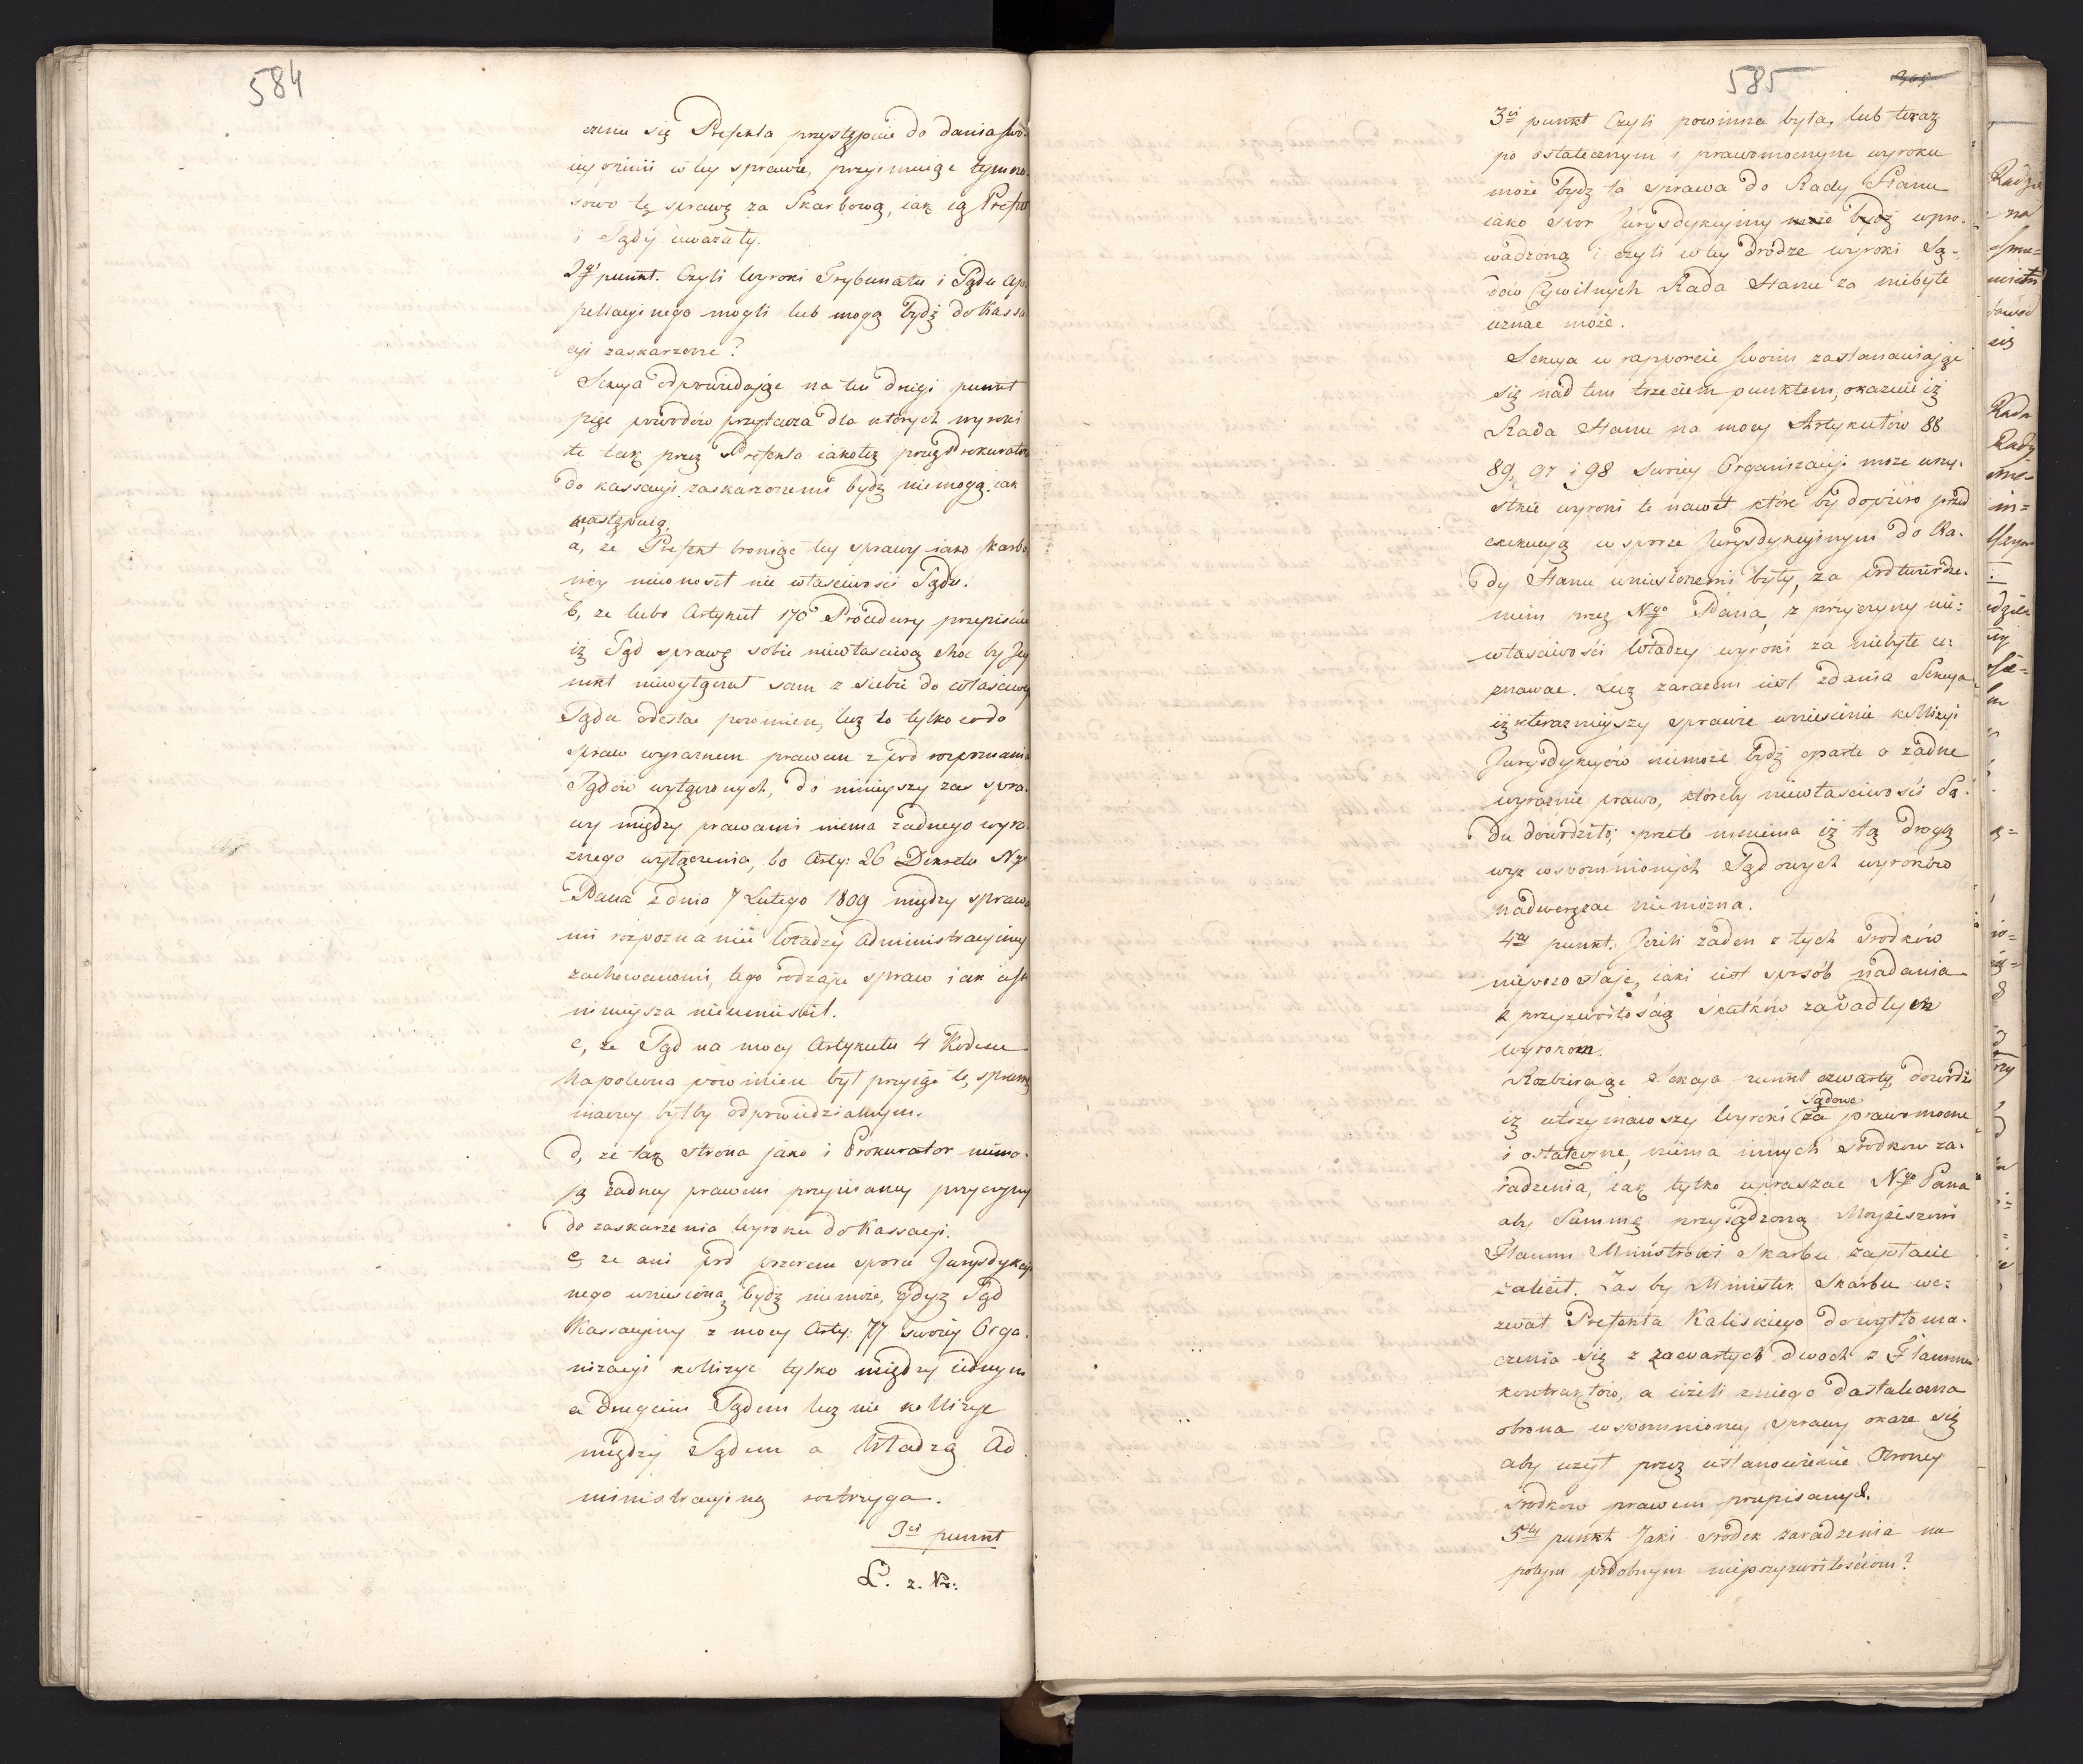 584
czeniu się Prefekta przystąpcie do dania swo-
iey opinii w tey sprawie, przyimuiąc tymcza-
sowo tę sprawę za Skarbową, iak ią Prefekt
i Sądy uważały.
2gi punkt. Czyli Wyroki Trybunału i Sądu Ap-
pellacyinego mogli lub mogą bydź do Kassa
cyi zaskarzone?
Sekcya odpowiedaiąc na ten drugi punkt
pięc powodów przytacza dla których wyroki
te tak przez Prefekta iakotez przez Prokuratora
do kassacyi zaskarzonemi bydź niemogą, iak
następuią,
a, ze Prefekt broniąc tey sprawy iako skarbo
wey niewnosił nie własciwosci Sądu.
b, ze lubo Artykuł 170 Procedury przepisuie
iż Sąd sprawę sobie niewłasciwą choc by Jey
nikt niewyłączał sam z siebie do własciwego
Sądu odesłac powinien, lecz to tylko co do
spraw wyraznem prawem z pod rozpoznania
Sądów wyłączonych, do ninieyszy zas spra-
wy między prawami niema żadnego wyra-
znego wyłączenia, bo Arty: 26 Dekretu Ngo
Pana z dnia 7 Lutego 1809 między sprawa
mi rozpoznanie Władzy Administracyiney
zachowanemi, tego rodzaiu spraw iak iest
ninieysza nieumiescił.
c, ze Sąd na mocy Artykułu 4 Kodexu
Napoleona powinien był przyiąc tę sprawę
inaczey byłby odpowiedzialnym.
d, ze tak strona jako i Prokurator niema-
ią żadney prawem przepisaney przyczyny
do zaskarzenia Wyroku do Kassacyi.
e, ze ani pod pozorem sporu Jurysdykcyi
nego wniesioną bydź niemoże, gdyz Sąd
Kassacyiny z mocy Arty: 77 swoiey Orga-
nizacyi kollizye tylko między iednym
a drugim Sądem lecz nie kollizye
między Sądem a Władzą Ad
ministracyiną roztrzyga.
3ci punkt
L. z. Nr:
585
305
3ci punkt Czyli powinna była, lub teraz
po ostatecznym i prawomocnym wyroku
może bydz ta sprawa do Rady Stanu
iako spor Jurysdykcyiny może bydź wpro-
wadzoną i czyli w tey drodze wyroki Są-
dów Cywilnych Rada Stanu za niebyłe
uznac może.
Sekcya w rapporcie swoim zastanawiaiąc
się nad tem trzeciem punktem, okazuie iż
Rada Stanu na mocy Artykułów 88
89, 97 i 98 Swoiey Organizacyi może wszy-
stkie wyroki te nawet które by dopiero przed
exekucyą w sporze Jurysdykcyinym do Ra-
dy Stanu wniesionemi były, za potwierdze-
niem przez Ngo Pana, z przyczyny nie-
własciwości Władzy wyroki za niebyłe u-
znawac. Lecz zarazem iest zdania Sekcya
iż w terazniejszy sprawie wniesienie kollizyi
Jurysdykcyów niemoże bydź oparte o żadne
wyraznie prawo, któreby niewłasciwość Są-
du dowodziło; przeto mniema iż tą drogą
wyz wspomnionych Sądowych wyroków
nadweręzac nie można.
4ty punkt. Jeżeli żaden z tych srodków
niepozostaje, iaki iest sposób nadania
z przyzwoitością skutków zapadłych
wyrokom.
Rozbieraiąc Sekcya punkt czwarty, dowodzi
Sądowe
iż utrzymawszy Wyroki za prawomocne
i ostateczne, niema innych srodkow za-
radzenia, iak tylko upraszac Ngo Pana
aby Summę przysądzoną Moyżeszowi
Flamm Ministrowi Skarbu zapłacic
zalecił. Zas by Minister Skarbu we-
zwał Prefekta Kaliskiego do wytłoma-
czenia się z zawartych dwoch z Flamme
kontraktów, a ieżeli z niego dostateczna
obrona wspomnioney sprawy okaze się
aby uzył przez ustanowienie Obroncy
srodków prawem przepisanych.
5ty punkt Jaki srodek zaradzenia na
potym podobnym nieprzyzwoitosciom?